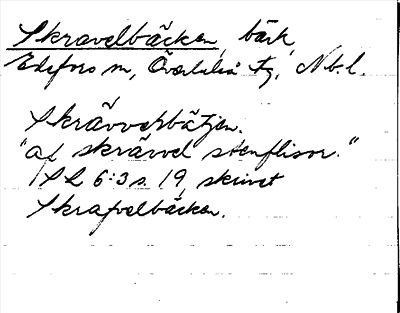 Skravelbäcken, bäck,
Edefors sn, Överluleå tg, Nb. l.
Skrävvelbätjen.
"af skrävvel stenflisor."
SL 6:3 s. 19, skrivet
Skrafvelbäcken.